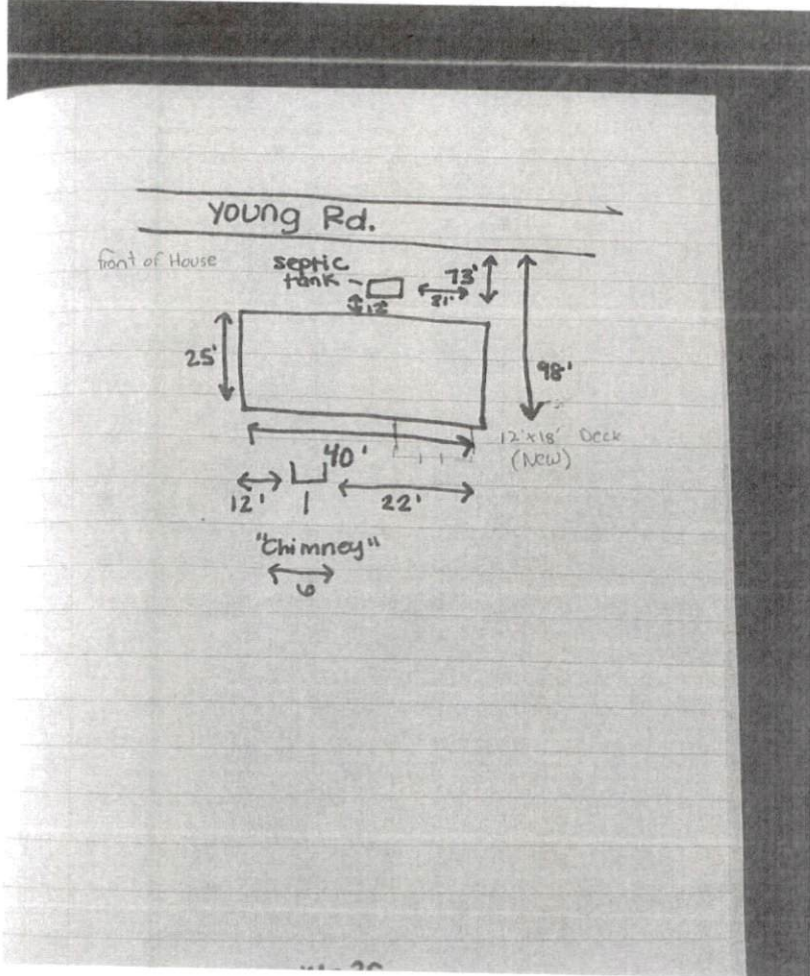 Young Rd.
front of House
septic
tank
73'
12'
25'
98'
12'x18' Deck
(New)
40'
12'
22'
"Chimney"
6